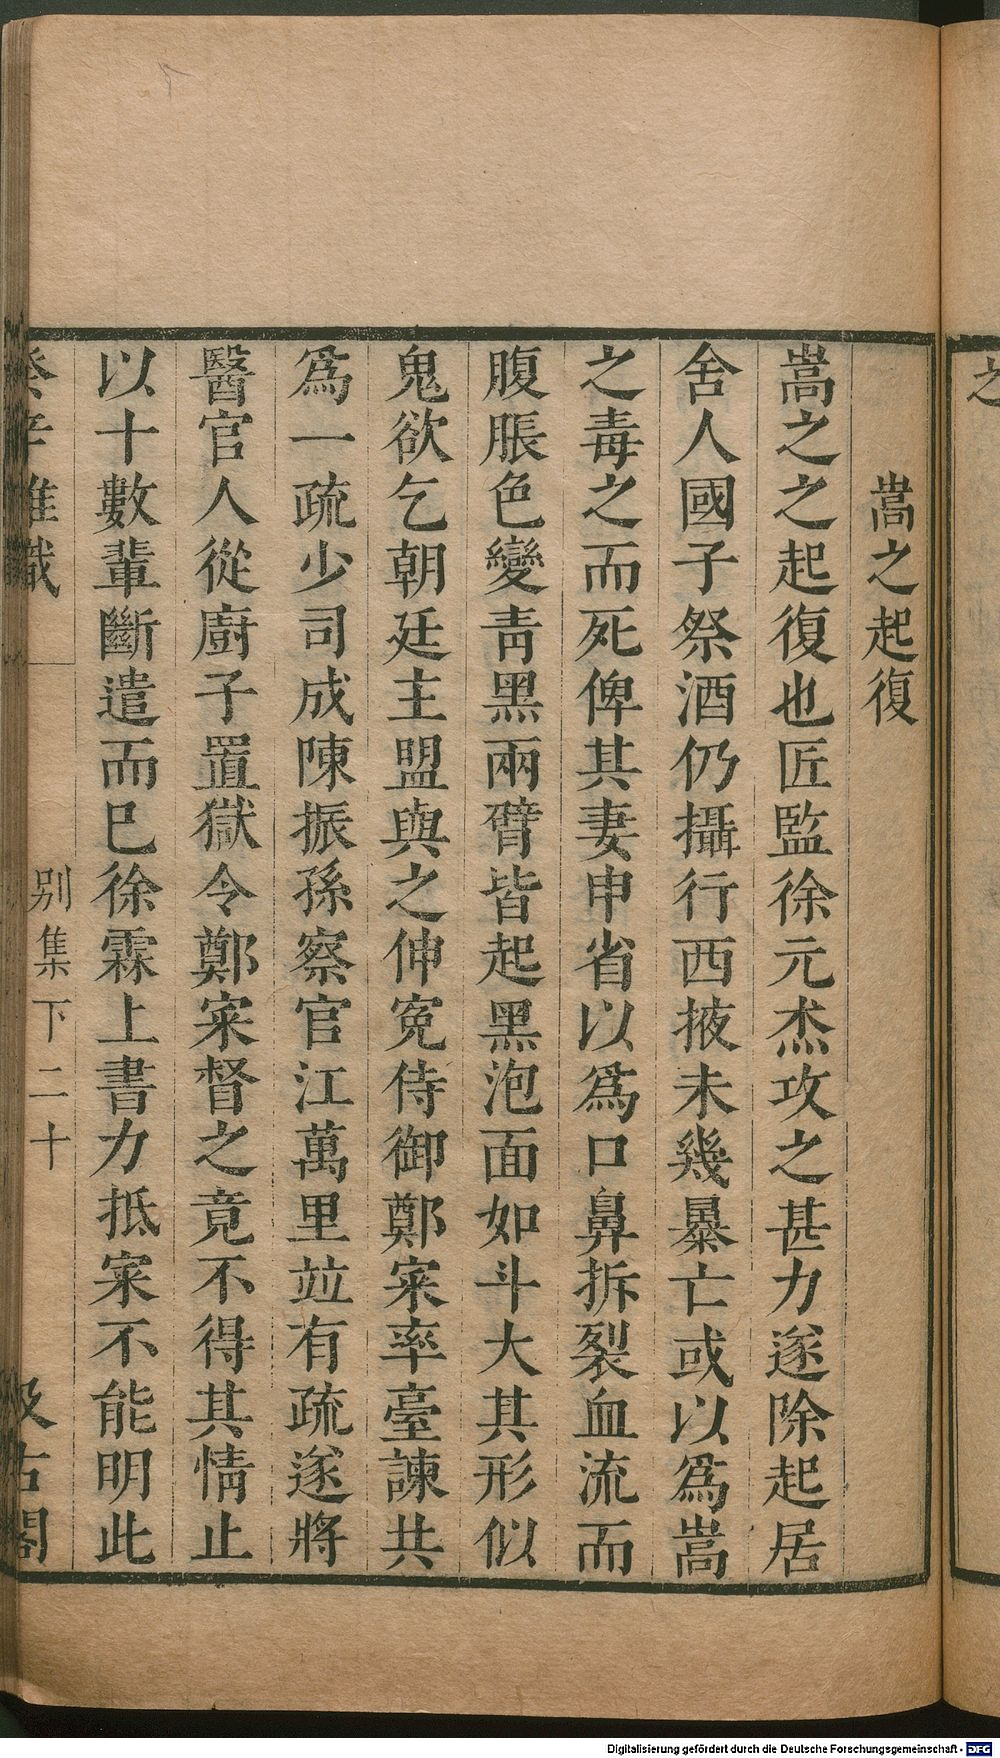 之
嵩之起復
嵩之之起復也匠監徐元杰攻之甚力遂除起居
舍人國子祭酒仍攝行西掖未幾暴亡或以爲嵩
之毒之而死俾其妻申省以爲口鼻拆裂血流而
腹脹色變青黑兩臂皆起黑泡面如斗大其形似
鬼欲乞朝廷主盟與之伸寃侍御鄭寀率臺諫共
爲一疏少司成陳振孫察官江萬里竝有疏遂將
醫官人從廚子置獄令鄭寀督之竟不得其情止
以十數輩斷遣而巳徐霖上書力抵寀不能明此
癸辛雜識 别集下 二十 汲古閣
Digitalisierung gefördert durch die Deutsche Forschungsgemeinschaft - DFG